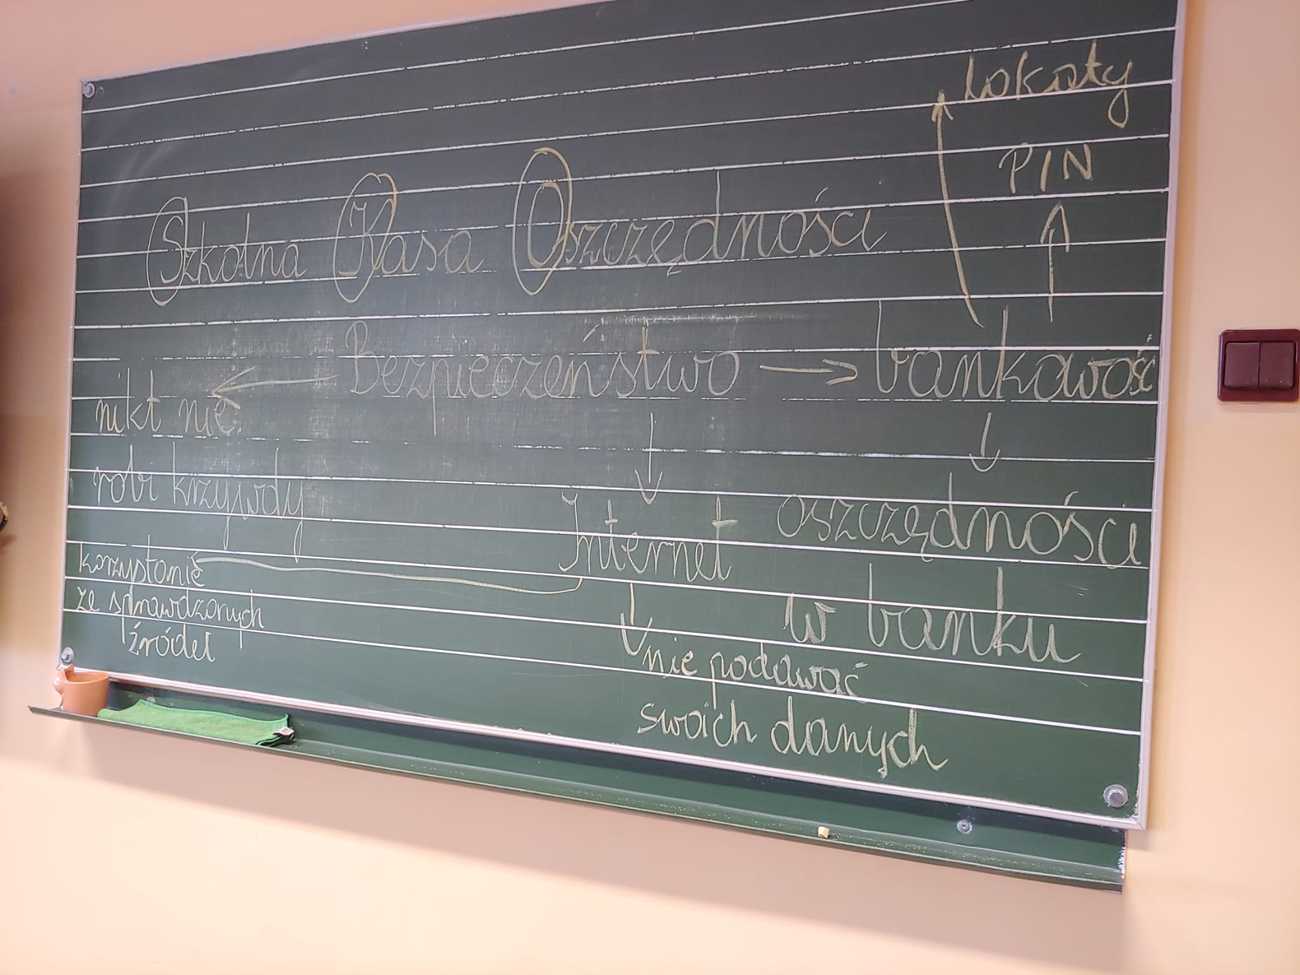 Lokaty
PIN
Szkolna Kasa Oszczędności
Bezpieczeństwo
bankowość
nikt nie
robi krzywdy
Internet
oszczędności
w banku
korzystanie
ze sprawdzonych
źródeł
nie podawać
swoich danych